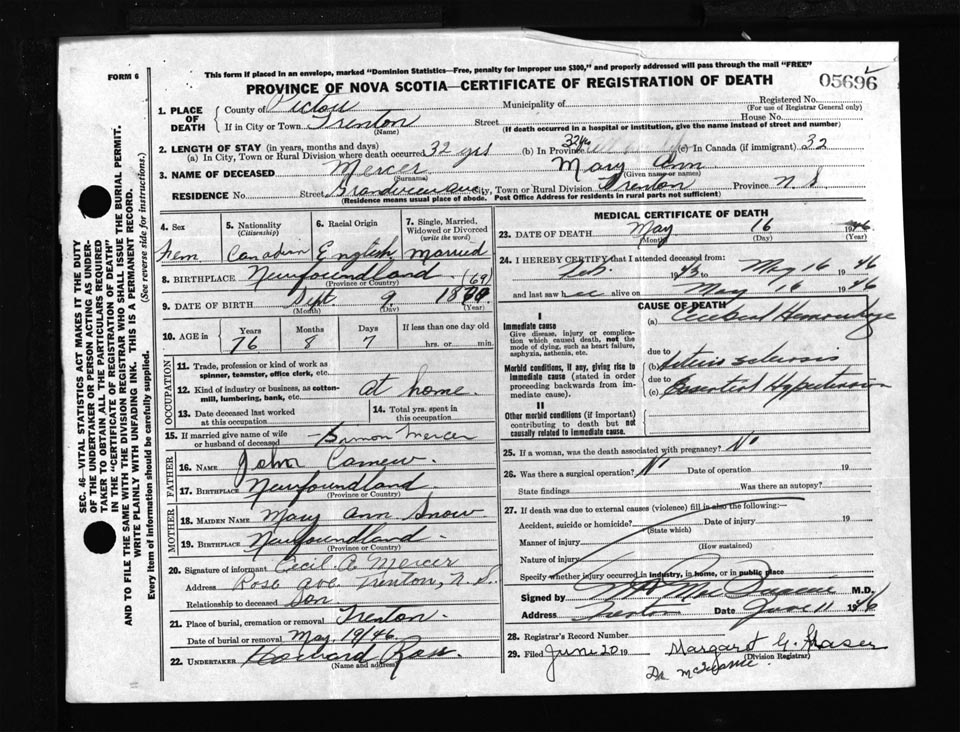 FORM 6
This form if placed in an envelope, marked "Dominion Statistics—Free, penalty for improper use $300," and properly addressed will pass through the mail "FREE"
PROVINCE OF NOVA SCOTIA—CERTIFICATE OF REGISTRATION OF DEATH
05696
1. PLACE OF DEATH
County of Pictou Municipality of Registered No.
(For use of Registrar General only)
If in City or Town Trenton Street House No.
(Name) (If death occurred in a hospital or institution, give the name instead of street and number)
2. LENGTH OF STAY (in years, months and days)
(a) In City, Town or Rural Division where death occurred 32 yrs (b) In Province 32 yrs (c) In Canada (if immigrant) 32
3. NAME OF DECEASED Mercer Mary Ann
(Surname) (Given name or names)
RESIDENCE No. Street Grandview Ave City, Town or Rural Division Trenton Province N. S
(Residence means usual place of abode. Post Office Address for residents in rural parts not sufficient)
4. Sex
Fem
5. Nationality
(Citizenship)
Canadian
6. Racial Origin
English
7. Single, Married, Widowed or Divorced
(write the word)
Married
8. BIRTHPLACE Newfoundland
(Province or Country)
(69)
9. DATE OF BIRTH Sept 9 18
(Month) (Day) (Year)
10. AGE in Years Months Days If less than one day old
76 8 7 hrs. or min.
OCCUPATION
11. Trade, profession or kind of work as spinner, teamster, office clerk, etc.
12. Kind of industry or business, as cotton-mill, lumbering, bank, etc. at home
13. Date deceased last worked at this occupation
14. Total yrs. spent in this occupation
15. If married give name of wife or husband of deceased Mercer
FATHER
16. NAME John
17. BIRTHPLACE Newfoundland
(Province or Country)
MOTHER
18. MAIDEN NAME Mary Ann Snow
19. BIRTHPLACE Newfoundland
(Province or Country)
20. Signature of informant Cecil A Mercer
Address Rose Ave Trenton, N. S.
Relationship to deceased Son
21. Place of burial, cremation or removal Trenton
Date of burial or removal May 19/46
22. UNDERTAKER Ross.
(Name and address)
MEDICAL CERTIFICATE OF DEATH
23. DATE OF DEATH May 16 1946
(Month) (Day) (Year)
24. I HEREBY CERTIFY that I attended deceased from:
Feb. 1943 to May 16 1946
and last saw her alive on May 16 1946
CAUSE OF DEATH
I
Immediate cause
Give disease, injury or complication which caused death, not the mode of dying, such as heart failure, asphyxia, asthenia, etc.
(a) Cerebral Hemorrhage
due to
Morbid conditions, if any, giving rise to immediate cause (stated in order proceeding backwards from immediate cause).
(b) Arterio sclerosis
due to
(c) Essential Hypertension
II
Other morbid conditions (if important) contributing to death but not causally related to immediate cause.
25. If a woman, was the death associated with pregnancy? No
26. Was there a surgical operation? No Date of operation 19
State findings Was there an autopsy?
27. If death was due to external causes (violence) fill in also the following:—
Accident, suicide or homicide? Date of injury 19
(State which)
Manner of injury
(How sustained)
Nature of injury
Specify whether injury occurred in industry, in home, or in public place
Signed by M.D.
Address Trenton Date June 11 1946
28. Registrar's Record Number
29. Filed June 20 19 Margaret G. Fraser
(Division Registrar)
SEC. 46—VITAL STATISTICS ACT MAKES IT THE DUTY
OF THE UNDERTAKER OR PERSON ACTING AS UNDER-
TAKER TO OBTAIN ALL THE PARTICULARS REQUIRED
IN THE "CERTIFICATE OF REGISTRATION OF DEATH"
AND TO FILE THE SAME WITH THE DIVISION REGISTRAR WHO SHALL ISSUE THE BURIAL PERMIT.
WRITE PLAINLY WITH UNFADING INK. THIS IS A PERMANENT RECORD.
Every item of information should be carefully supplied. (See reverse side for instructions.)